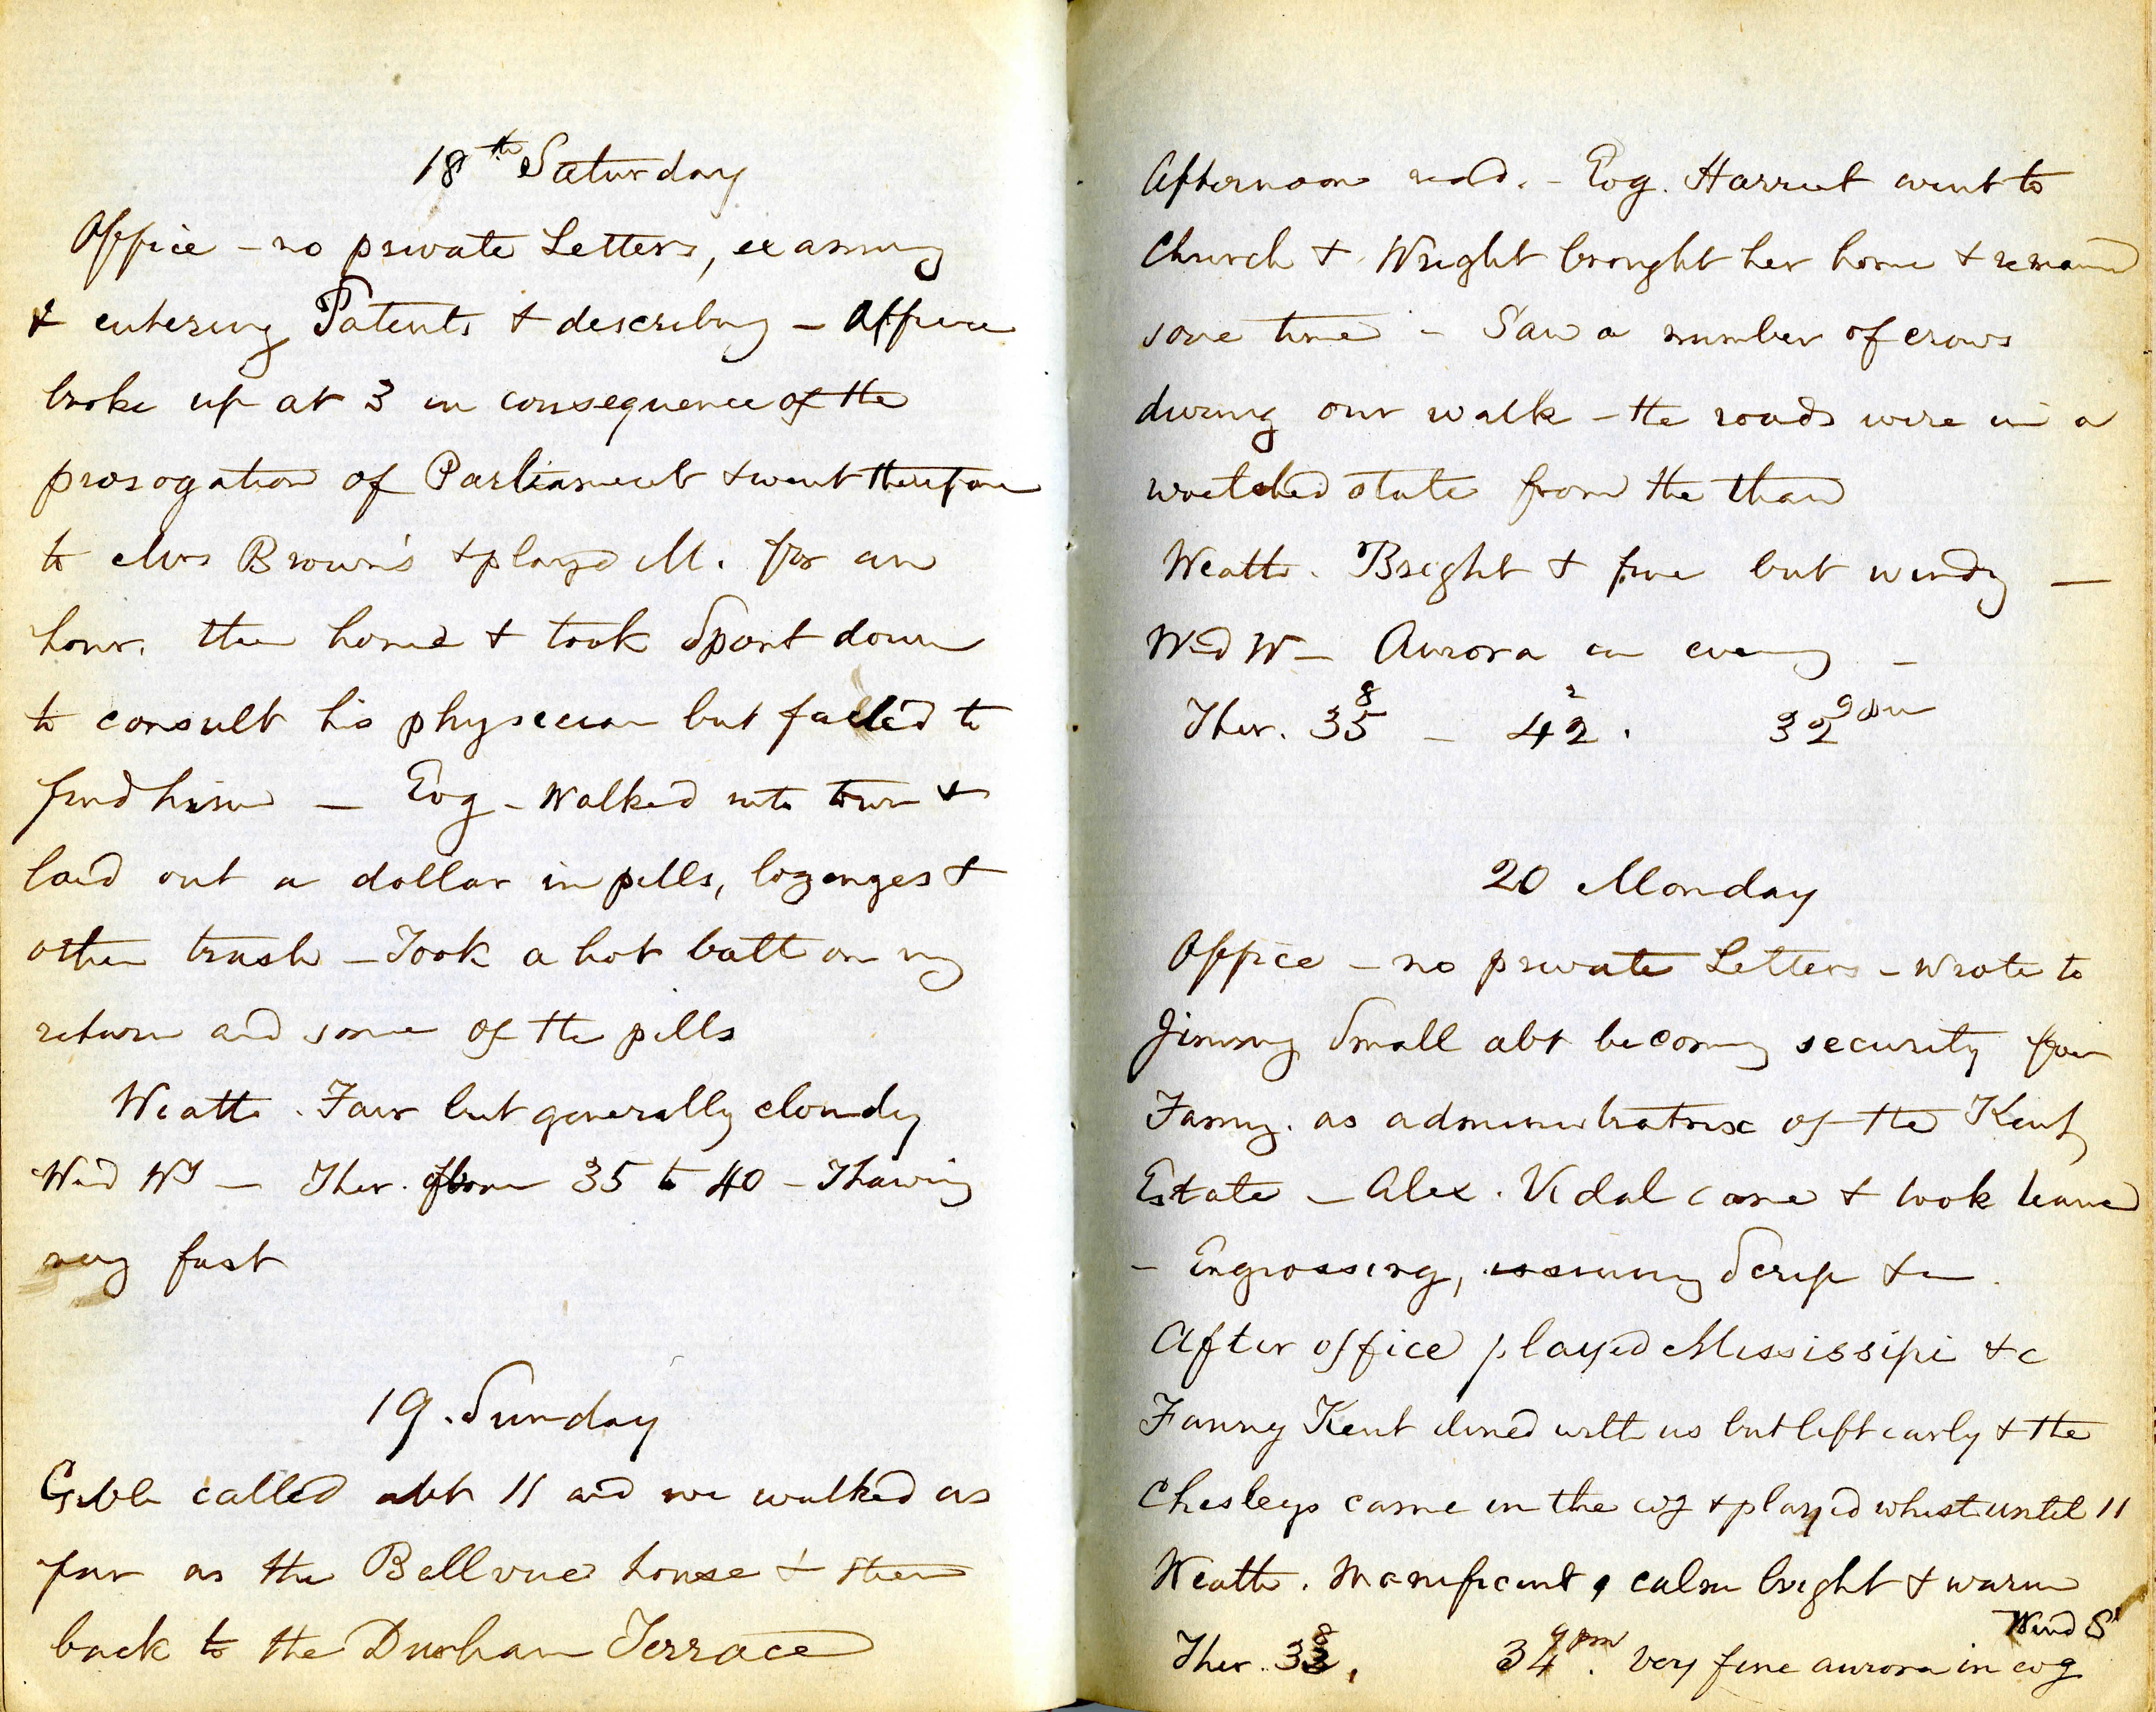 18th Saturday
Office - no private Letters, examing
& entering Patents & describing - Office
broke up at 3 in consequence of the
prorogation of Parliament & went therefore
to Mrs Brown's & played M. for an
hour. then home & took Sport down
to consult his physician but failed to
find him - Evg - Walked into town &
laid out a dollar in pills, lozenges &
other trash - Took a hot bath on my
return and some of the pills
Weathr. Fair but generally cloudy
Wind Wy - Ther. from 35 to 40 - Thawing
very fast
19. Sunday
Gibb called abt 11 and we walked as
far as the Bellvue house & then
back to the Durham Terrace
Afternoon read. - Evg. Harriet went to
Church & Wright brought her home & remained
some time - Saw a number of crows
during our walk - the roads were in a
wretched state from the thaw
Weathr. Bright & fine but windy -
Wnd W - Aurora in evening -
Ther. 35 8 - 42 2. 32 9 pm
20 Monday
Office - no private Letters - wrote to
Jimmy Small abt becoming security for
Fanny. as administratrix of the Kent
Estate - Alex. Vidal came & took leave
- Engrossing, issuing Scrip &c.
After office played Mississipi &c
Fanny Kent dined with us but left early & the
Chesleys came in the evg & played whist until 11
Weathr. Magnificent, calm bright & warm
Wind S
Ther. 33 8. 34 9 pm. Very fine aurora in evg